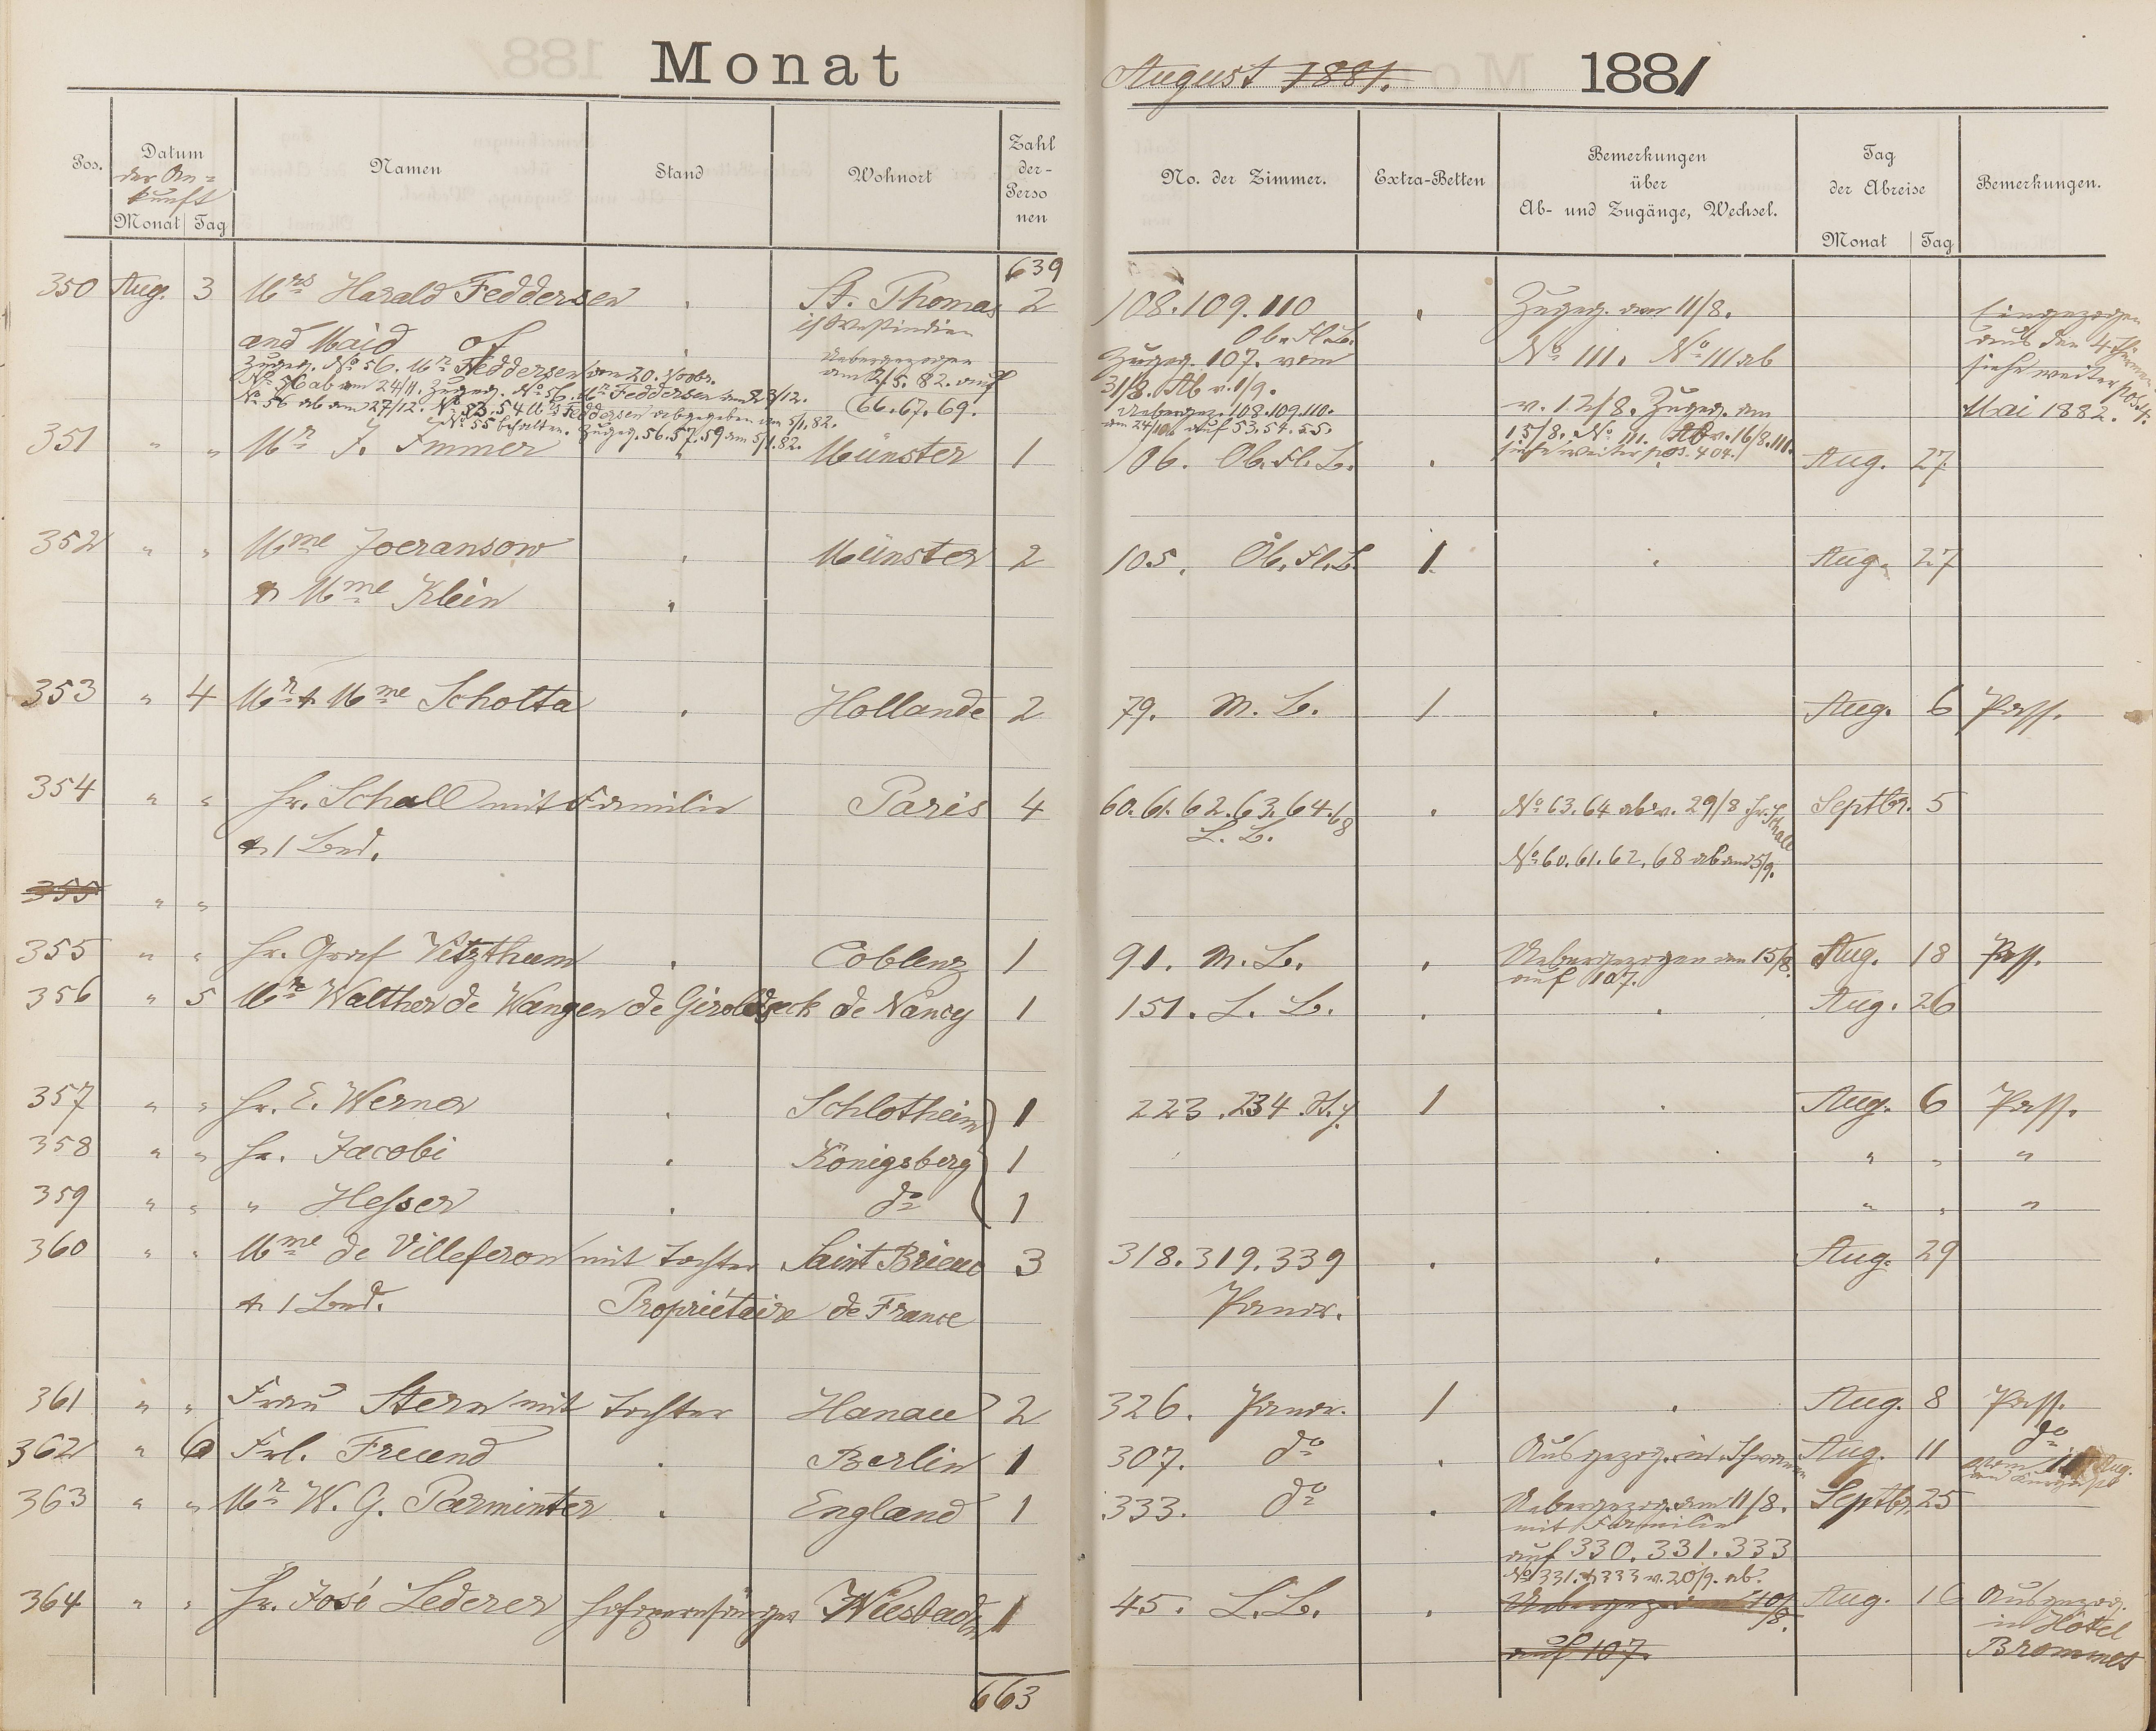 Monat
August 1881.
1881
Pos.
Datum
der An=
kunft
Monat Tag
Namen
Stand
Wohnort
Zahl
der-
Perso
nen
No. der Zimmer.
Extra-Betten
Bemerkungen
über
Ab- und Zugänge, Wechsel.
Tag
der Abreise
Monat Tag
Bemerkungen.
639
350 Aug. 3 Mrs Harald Feddersen St. Thomas 2 108.109.110 Zugeg. am 11/8. Eingezogen
and Maid of Westindien Ob. Fl. B. No 111. No 111 ab aus den
Zugeg. No 56. Mr Feddersen am 20. Novbr. Uebergezogen Zugeg. 107. vom siehe weiter pos. 4.
No 56 ab am 24/11. Zugeg. No 56. Mr Feddersen am 23/12. am 2/5. 82. auf 31/8. Ab v. 1/9. v. 12/8. Zugeg. am Mai 1882.
No 56 ab am 27/12. No 53.54 Mrs Feddersen abgegeben am 5/1.82. (66.67.69. Uebergez. 108.109.110. 15/8. No 111. Ab v. 16/8.111.
No 55 behalten. Zugeg. 56.57.59 am 5/1.82. am 24/10 auf 53.54.55. siehe weiter pos. 404.
351 " " Mr J. Immer Münster 1 106. Ob. Fl. B. Aug. 27
352 " " Mme Joeransow Münster 2 105. Ob. Fl. B. 1 Aug. 27
& Mme Klein
353 " 4 Mr & Mme Scholta Hollande 2 79. M. B. 1 Aug. 6 Pass.
354 " " Hr. Schall mit Familie Paris 4 60.61.62.63.64.68 No 63.64 ab v. 29/8 Hr. Schall Septbr. 5
& 1 Bed. L. B. No 60.61.62.68 ab am 5/9.
355 " "
355 " " Hr. Graf Vitzthum Coblenz 1 91. M. B. Uebergezogen am 15/8. Aug. 18 Pass.
auf 107.
356 " 5 Mr Walther de Wangen de Geroldseck de Nancy 1 151. L. B. Aug. 26
357 " " Hr. E. Werner Schlotheim 1 223.234. 1 Aug. 6 Pass.
358 " " Hr. Jacobi Königsberg 1 " " "
359 " " " Hesser do 1 " " "
360 " " Mme de Villeferon mit Tochter Saint Brieuc 3 318.319.339 Aug. 29
& 1 Bed. Propriétaire de France Panor.
361 " " Frau Stern mit Tochter Hanau 2 326. Panor. 1 Aug. 8 Pass.
362 " 6 Frl. Freund Berlin 1 307. do Ausgezog. in Schwanen Aug. 11 do
363 " " Mr W. G. Parminter England 1 333. do Uebergezog. am 11/8. Septbr. 25
mit Familie
auf 330.331.333
No 331. & 333 v. 20/9. ab.
364 " " Hr. José Lederer Hofopernsänger Wiesbaden 1 45. L. B. Uebergezogen 10/8. Aug. 16 Ausgezog.
auf 107. in Hôtel
Brommes
663